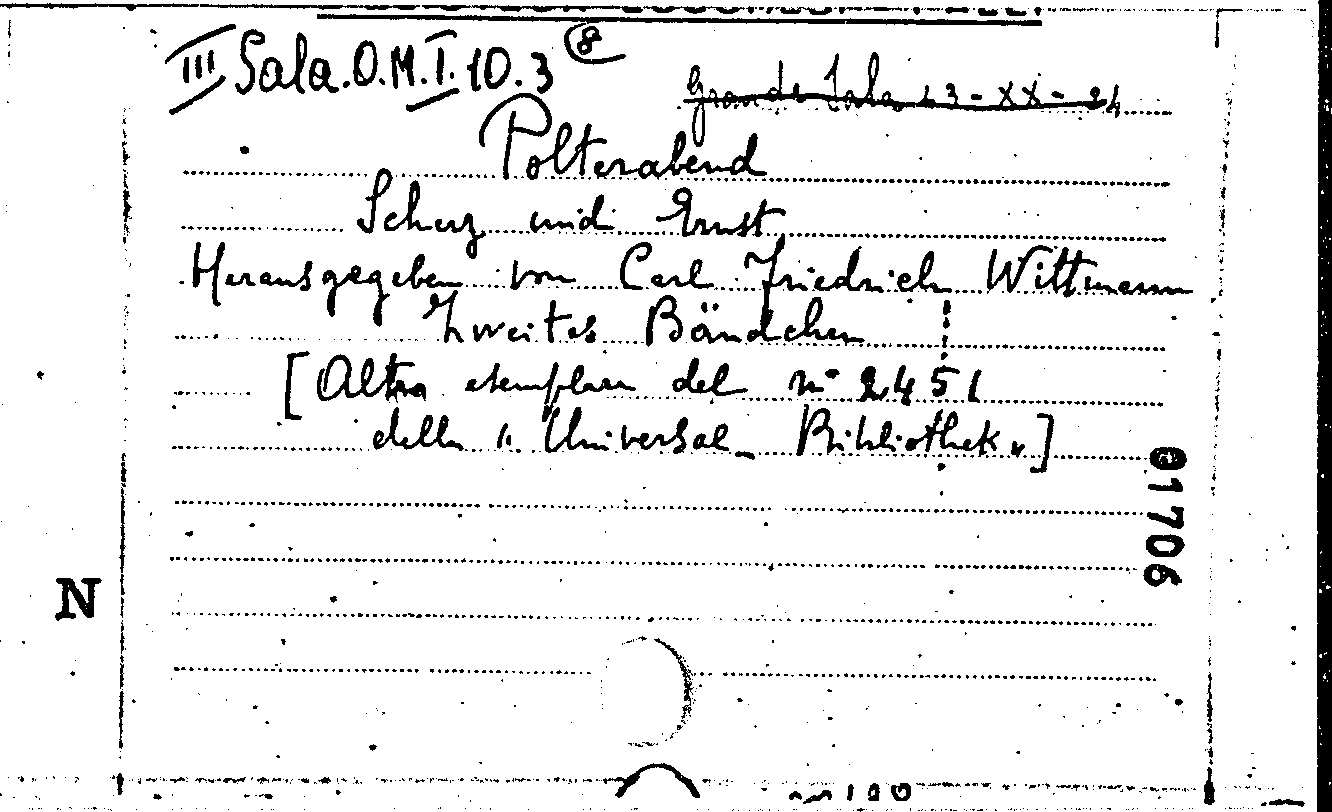 III Sala.O.M.I.10.3 8
Grande Sala 23-XX-24
Polterabend
Scherz und Ernst
Herausgegeben von Carl Friedrich Wittmann
Zweites Bändchen
[Altro esemplare del n° 2451
della "Universal-Bibliothek"]
01706
N